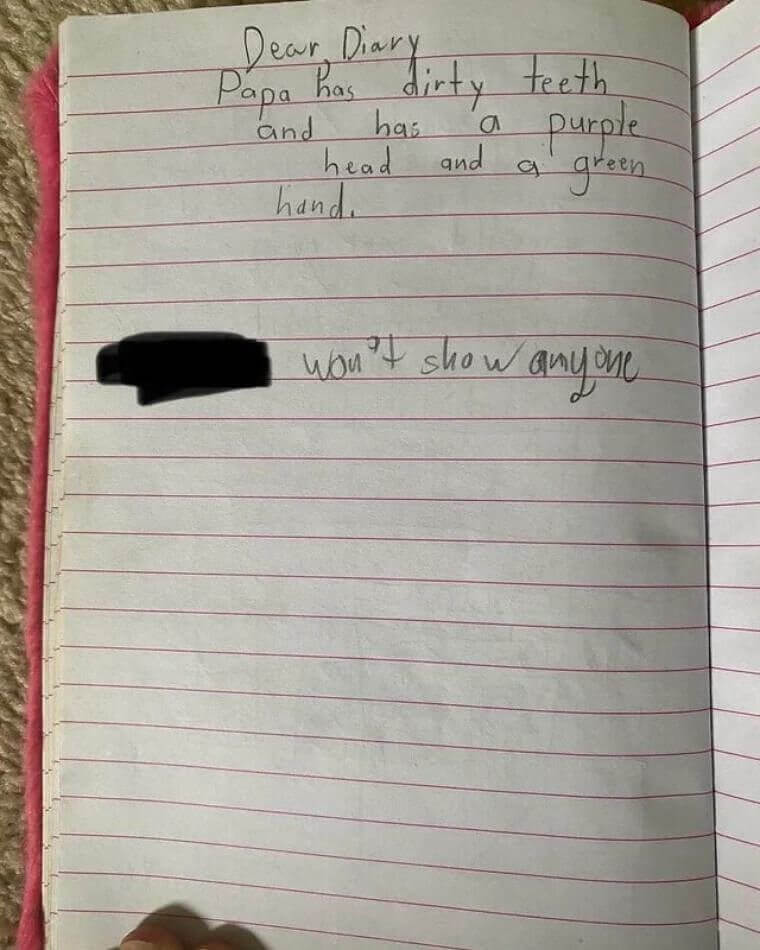 Dear, Diary
Papa has dirty teeth
and has a purple
head and a green
hand.
won't show anyone